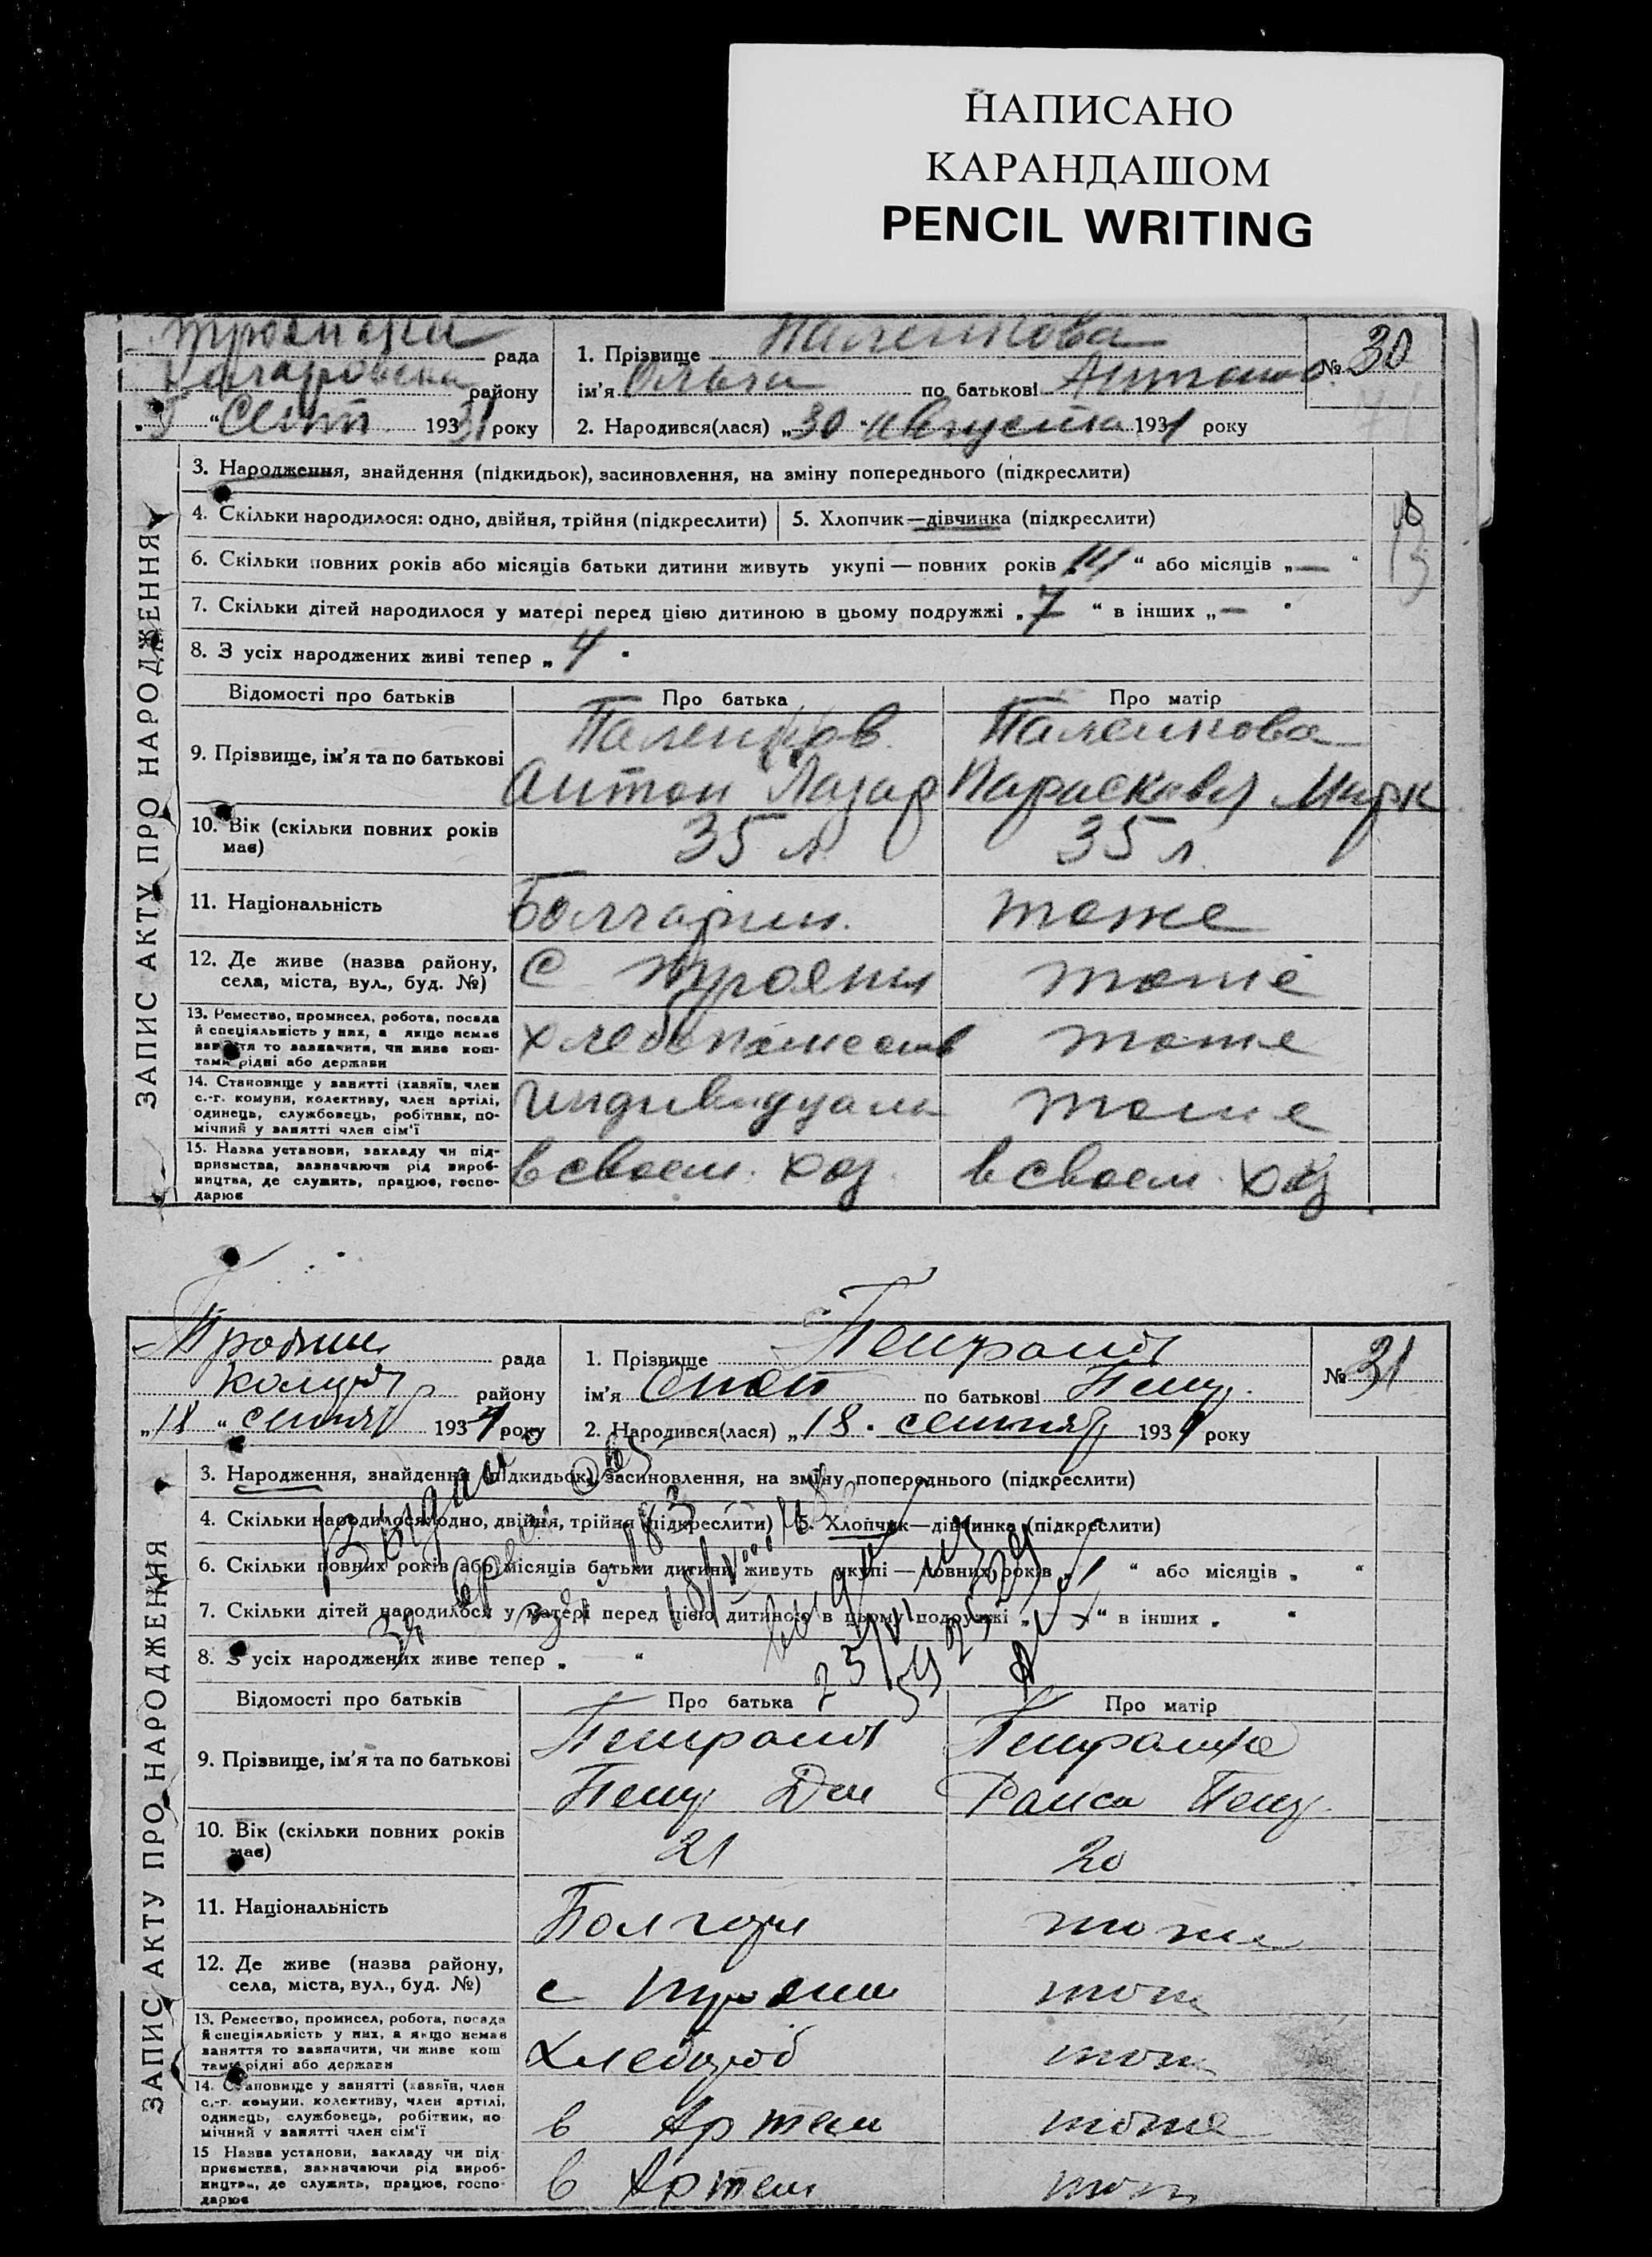 НАПИСАНО
КАРАНДАШОМ
PENCIL WRITING
рада
району
Сент 1931 року
1. Прізвище Паленкова
ім'я Ольга по батькові Антонов
2. Народився(лася) „30“ августа 1931 року
№ 30
ЗАПИС АКТУ ПРО НАРОДЖЕННЯ
3. Народження, знайдення (підкидьок), засиновлення, на зміну попереднього (підкреслити)
4. Скільки народилося: одно, двійня, трійня (підкреслити)
5. Хлопчик—дівчинка (підкреслити)
6. Скільки повних років або місяців батьки дитини живуть укупі — повних років „ “ або місяців „—“
7. Скільки дітей народилося у матері перед цією дитиною в цьому подружжі „7“ в інших „—“
8. З усіх народжених живі тепер „4“
Відомості про батьків
Про батька
Про матір
9. Прізвище, ім'я та по батькові
Паленков
Антон Лазар
Паленкова
Парасковя Марк
10. Вік (скільки повних років має)
35 л
35 л.
11. Національність
Болгарин.
тоже
12. Де живе (назва району, села, міста, вул., буд. №)
с Трояни
тоже
13. Ремество, промисел, робота, посада й спеціяльність у них, а якщо немає заняття то зазначити, чи живе коштами рідні або держави
хлебопашеств
тоже
14. Становище у занятті (хазяїн, член с.-г. комуни, колективу, член артілі, одинець, службовець, робітник, помічний у занятті член сім'ї
Индивидуалн
тоже
15. Назва установи, закладу чи підприємства, зазначаючи рід виробництва, де служить, працює, господарює
в своем. хоз.
в своем. хоз
Трояни рада
району
„18“ сентяб 1931 року
1. Прізвище
ім'я по батькові Петр.
2. Народився(лася) „18. сентяб 1931 року
№ 31
ЗАПИС АКТУ ПРО НАРОДЖЕННЯ
3. Народження, знайдення (підкидьок), засиновлення, на зміну попереднього (підкреслити)
4. Скільки народилося: одно, двійня, трійня (підкреслити)
5. Хлопчик—дівчинка (підкреслити)
6. Скільки повних років або місяців батьки дитини живуть укупі — повних років „1“ або місяців „ “
7. Скільки дітей народилося у матері перед цією дитиною в цьому подружжі „ “ в інших „ “
8. З усіх народжених живе тепер „ “
Выдано
Відомості про батьків
Про батька
Про матір
9. Прізвище, ім'я та по батькові
Петр
Раиса Петр.
10. Вік (скільки повних років має)
21
20
11. Національність
Болгари
тоже
12. Де живе (назва району, села, міста, вул., буд. №)
с Трояни
тоже
13. Ремество, промисел, робота, посада й спеціяльність у них, а якщо немає заняття то зазначити, чи живе коштами рідні або держави
Хлебороб
тоже
14. Становище у занятті (хазяїн, член с.-г. комуни, колективу, член артілі, одинець, службовець, робітник, помічний у занятті член сім'ї
в Артели
тоже
15 Назва установи, закладу чи підприємства, зазначаючи рід виробництва, де служить, працює, господарює
в Артели
тоже